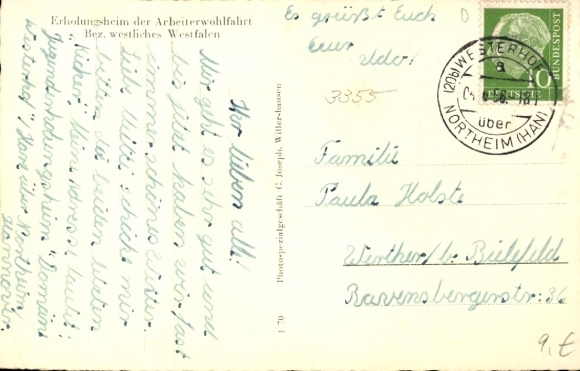 Erholungsheim der Arbeiterwohlfahrt
Bez. westliches Westfalen
Ihr lieben all!
Mir geht es sehr gut und
bis jetzt haben wir fast
immer schönes Wetter
Liebe Mutti schicke mir
bitte die beiden letzten
Kicker. Meine Adresse lautet:
Jugenderholungsheim "Domäne
Westerhof" Harz über Northeim
Hannover
Es grüßt Euch
Euer
Udo!
3355
Photospezialgeschäft C. Joseph, Willershausen
1 70
DEUTSCHE
BUNDESPOST
10
(20b) WESTERHOF
a
über
NORTHEIM (HAN)
Familie
Paula Holste
Werther/b. Bielefeld
Ravensbergerstr. 36
9,- €